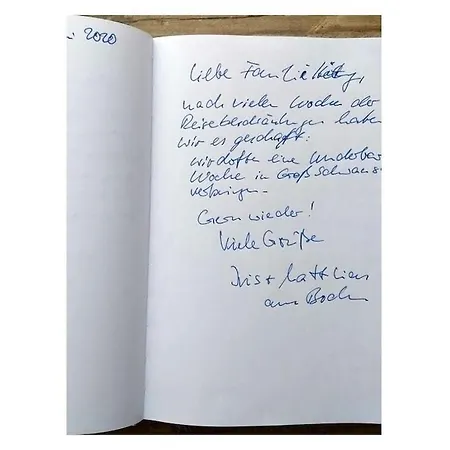 2020
Liebe Familie
nach vielen Wochen der
Reisebeschränkungen haben
wir es geschafft:
wir dürften eine wunderbar
Woche in Groß Schwans
verbringen.
Gern wieder!
Viele Grüße
Iris + Matthias
aus